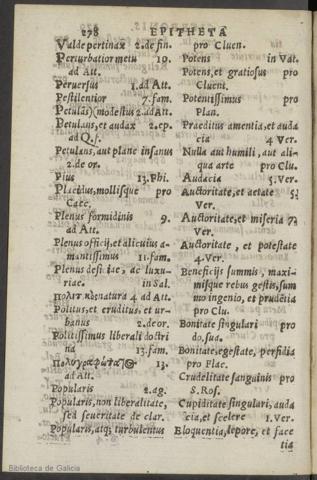 278 EPITHETA
Valde pertinax 2. de fin.
Perturbatior metu 10.
ad Att.
Peruersus 1. ad Att.
Pestilentior 7. fam.
Petulas) (modestus 2. ad Att.
Petulans, et audax 2. ep.
ad Q. f.
Petulans, aut plane insanus
2. de or.
Pius 13. Phi.
Placidus, mollisque pro
Caec.
Plenus formidinis 9.
ad Att.
Plenus officij, et alicuius a-
mantissimus 11. fam.
Plenus ac luxu-
riae. in Sal.
4 ad Att.
Politus, et eruditus, et ur-
banus 2. de or.
Politissimus liberali doctri
na 13. fam.
13.
ad Att.
Popularis 2. ag.
Popularis, non liberalitate,
sed seueritate de clar.
Popularis, atq; turbulentus
pro Cluen.
Potens in Vat.
Potens, et gratiosus pro
Cluent.
Potentissimus pro
Plan.
Praeditus amentia, et auda
cia 4 Ver.
Nulla aut humili, aut ali-
qua arte pro Clu.
Audacia 3. Ver.
Auctoritate, et aetate 5.
Ver.
Auctoritate, et miseria 7.
Ver.
Auctoritate, et potestate
4. Ver.
Beneficijs summis, maxi-
misque rebus gestis, sum
mo ingenio, et prudētia
pro Clu.
Bonitate singulari pro
do. sua.
Bonitate, egestate, perfidia
pro Flac.
Crudelitate sanguinis pro
S. Ros.
Cupiditate singulari, auda
cia, et scelere 1. Ver.
Eloquentia, lepore, et face
tia
Biblioteca de Galicia